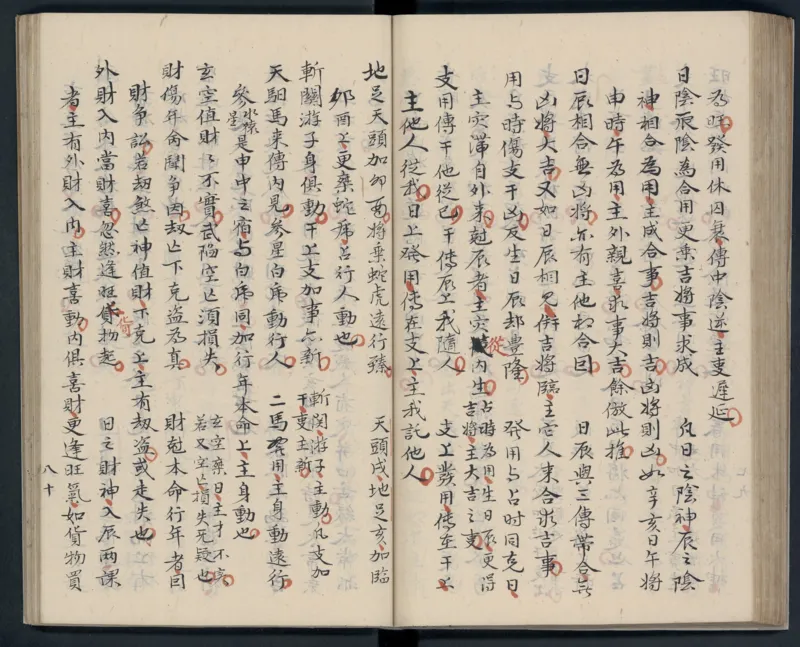 為時發用休囚衰傳中陰逆主吏遲延
日陰辰陰為合用更乘吉將事求成 凡日之陰神辰之陰
神相合為用主成合事吉將則吉凶將則凶如辛亥日午將
申時午為用主外親喜求事大吉餘倣此推
日辰相合無凶將亦有主他和合回 日辰與三傳帶合無
凶將大吉又如日辰相見併吉將臨主它人來合求吉事
用与時傷支干凶反生日辰却豊隆 發用与占時同克日
主灾滯自外来尅辰者主灾從内生占時為用生日辰更得吉將主大吉之事
支用傳干他從己干傳辰上我隨人 支上發用傳在干上
主他人從我日上發用傳在支上主我託他人
地足天頭加卯酉將乗蛇虎遠行臻 天頭戌地足亥加臨
卯酉上更乗蛇虎占行人動也
斬關游子身俱動干上支加事占新 斬關游子主動凡支加干吏主新
天駟馬来傳内見參星白虎動行人 二馬發用主身動遠行
參水猿星是申中之宿与白虎同加行年本命上主身動也
玄空值財財不實武臨空亡須損失 玄空乘日主才不實若又空亡損失無疑也
財傷年命鬪爭因劫亡下克盗為真 財尅本命行年者回
財爭訟若劫煞亡神值財下克上主有劫盗或走失也
外財入内當財喜忽然逢旺貨物起 日之財神入辰兩課
者主有外財入内主財喜動内俱喜財更逢旺氣如貨物買
七九
八十